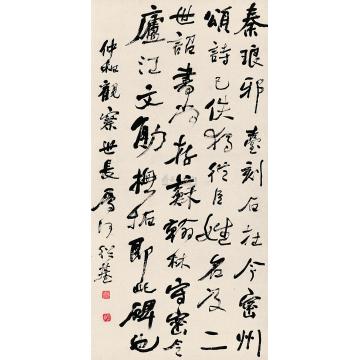 秦琅邪臺刻石在今密州
頌詩已佚獨從臣姓名及二
世詔書尚存蘇翰林守密令
廬江文勛撫拓即此碑也
仲和觀察世長屬何紹基